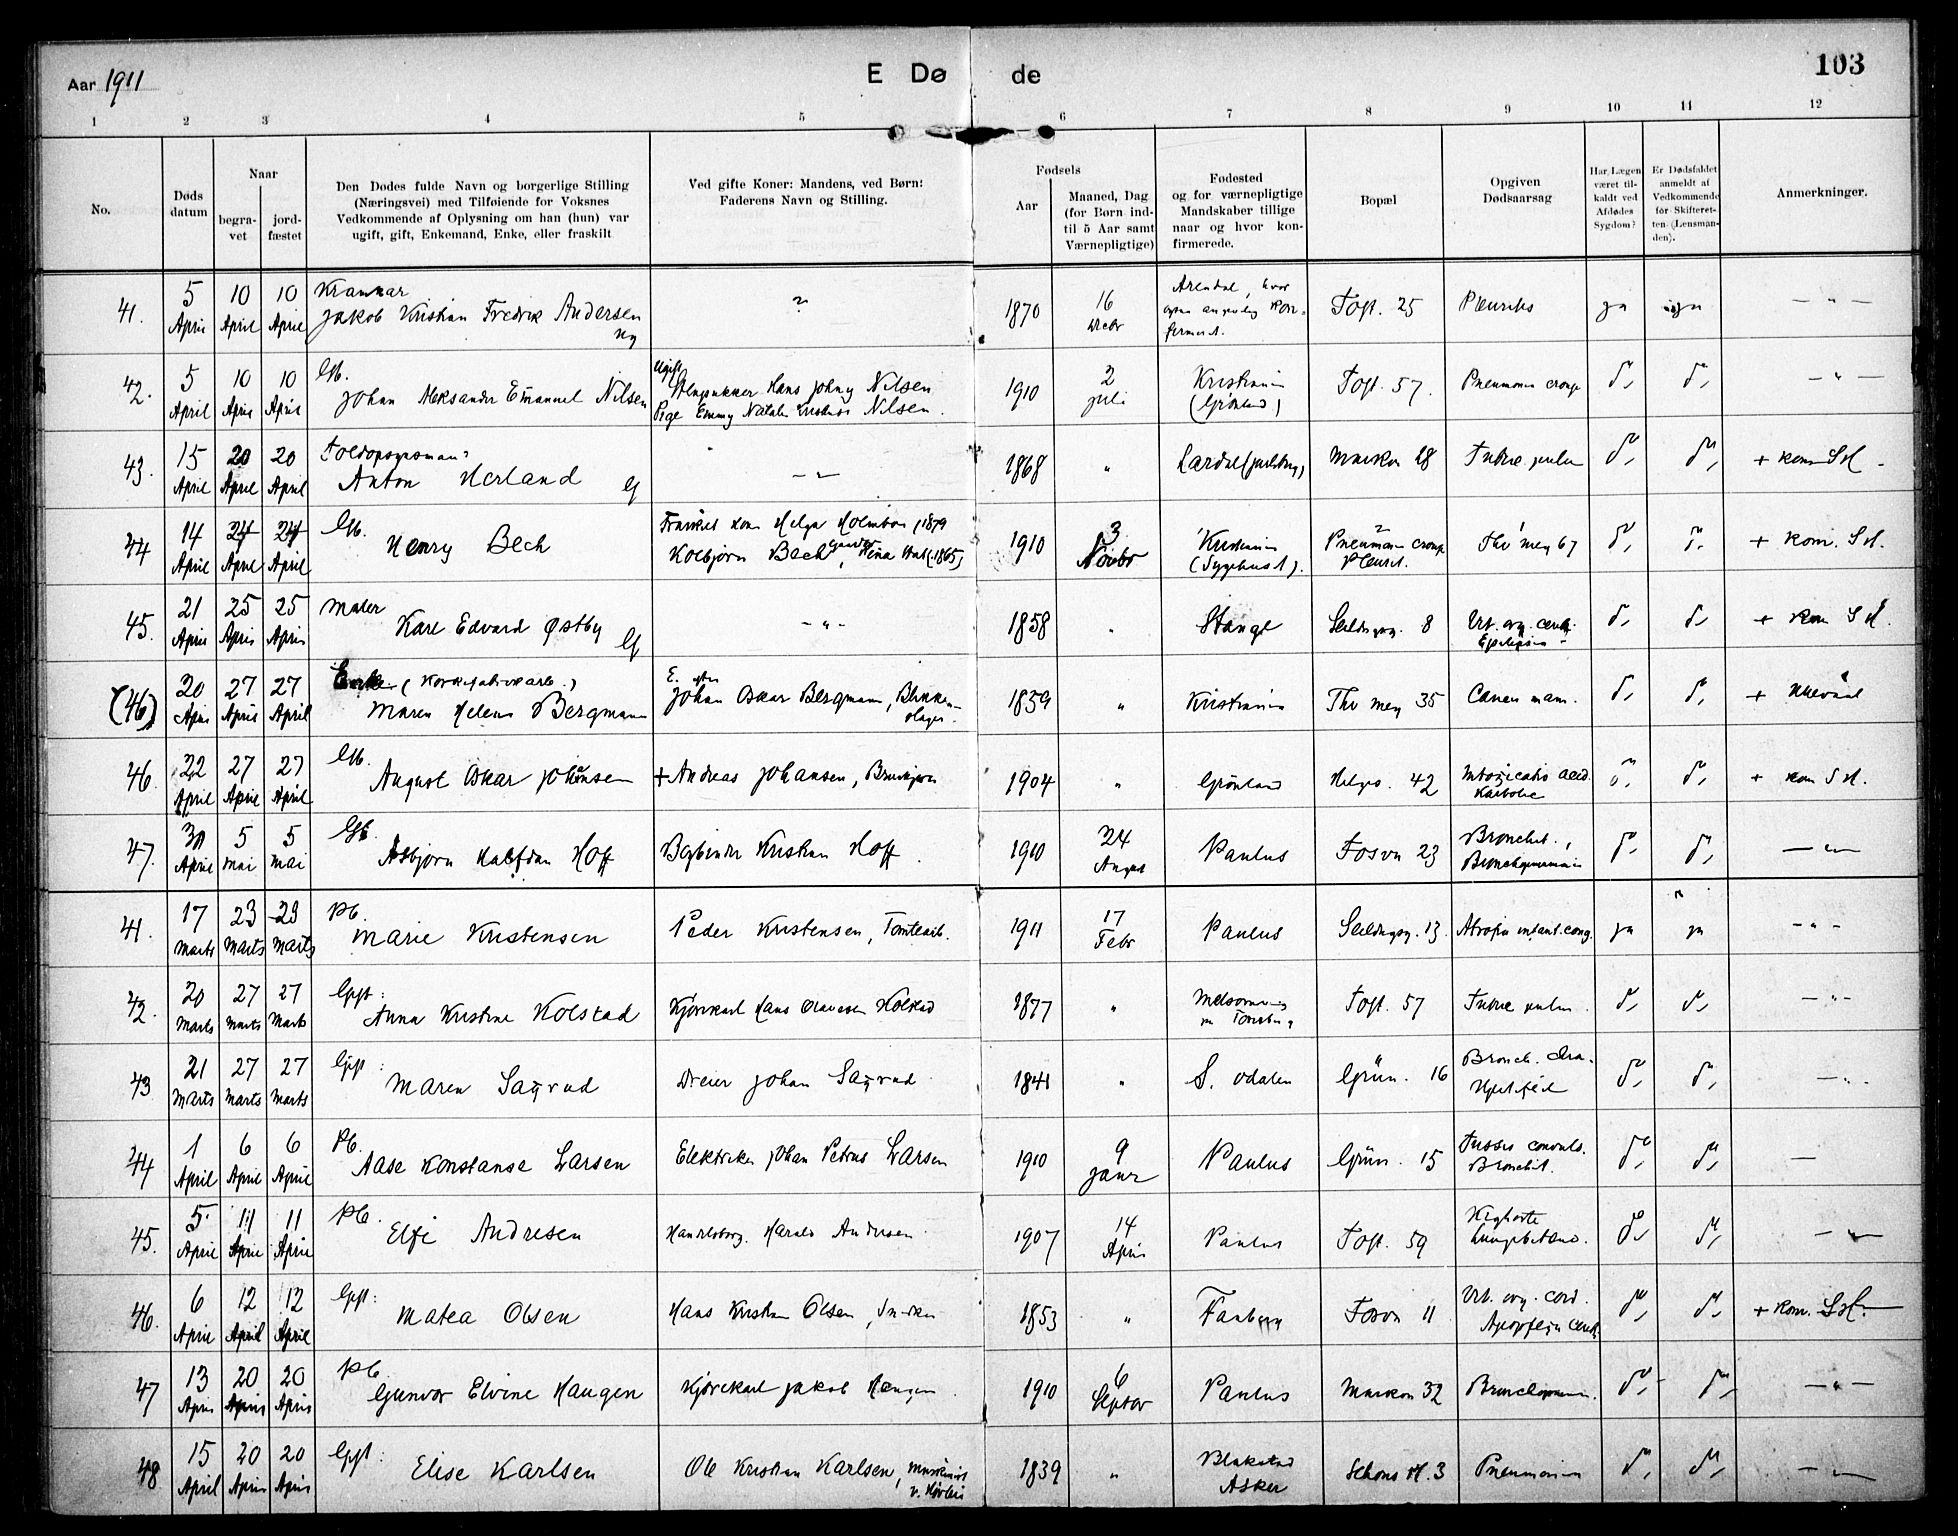 Aar 1911
E Dø de
103
1 2 3 4 5 6 7 8 9 10 11 12
No.
Døds
datum
Naar
begra-
vet
jord-
fæstet
Den Dødes fulde Navn og borgerlige Stilling
(Næringsvei) med Tilføiende for Voksnes
Vedkommende af Oplysning om han (hun) var
ugift, gift, Enkemand, Enke, eller fraskilt
Ved gifte Koner: Mandens, ved Børn:
Faderens Navn og Stilling.
Fødsels
Aar
Maaned, Dag
(for Børn ind-
til 5 Aar samt
Værnepligtige)
Fødested
og for værnepligtige
Mandskaber tillige
naar og hvor kon-
firmerede.
Bopæl
Opgiven
Dødsaarsag
Har Lægen
været til-
kaldt ved
Afdødes
Sygdom?
Er Dødsfaldet
anmeldt af
Vedkommende
for Skifteret-
ten (Lensman-
den).
Anmerkninger.
41. 5 April 10 April 10 April
Jakob Kristian Fredrik Andersen
ug
? 1870 16 Decbr Arendal, hvor
Toft. 25 ja ja — " —
42. 5 April 10 April 10 April Gb.
Johan Aleksander Emanuel Nilsen
Hans Johny Nilsen
Pige Emmy Natalie Nilsen.
1910 2 Juli Kristiania
(Grønland) Toft. 57. Pneumonia croup do do — " —
43. 15 April 20 April 20 April
Anton Herland G
— " — 1868 " Lardal (Jarlsberg) 28 Tuberc. pulm do do + kom Sk.
44 14 April 24 April 24 April Gb.
Henry Bech
Helga Holmboe (1879
Kolbjørn Bech
1910 3 Novbr Kristiania
(Sygehuset). Pneumonia croup
Pleurit. Thv Mey 67 do do + kom. Sk.
45. 21 April 25 April 25 April Maler
Karl Edvard Østby G
— " — 1858 " Stange Seildugsg. 8 Vit. org. cordis
Epilepsia do do + kom Sk.
(46) 20 April 27 April 27 April Enke
Maren Helene Bergmann
E. efter
Johan Oskar Bergmann, Blikken-
slager.
1859 " Kristiania Thv Mey 35 Cancer mam. do do +
46. 22 April 27 April 27 April Gb.
August Oskar Johansen
+ Andreas Johansen,
1904 " Grønland Helgs. 42 Intoxicatio acid.
Karbolic do do + kom Sk.
47. 30 April 5 Mai 5 Mai Gb.
Asbjørn Halfdan Hoff
Bogbinder Kristian Hoff.
1910 24 August Paulus Fosvn 23 Bronchit.,
Bronchopneumonia do do — " —
41. 17 Marts 23 Marts 23 Marts Pb.
Marie Kristensen
Peder Kristensen, Tomtearb.
1911 17 Febr Paulus Seildugsg. 13. Atrofia infant. cong. ja ja — " —
42. 20 Marts 27 Marts 27 Marts Gift:
Anna Kristine Kolstad
Kjørekarl Hans Olavesen Kolstad
1877 " Melsomvig
pr Tønsberg Toft. 57 Tuberc pulm. do do — " —
43 21 Marts 27 Marts 27 Marts Gift:
Maren Sagrud
Dreier Johan Sagrud
1841 " S. Odalen Grün. 16 do do — " —
44 1 April 6 April 6 April Pb.
Aase Konstanse Larsen
Elektriker Johan Petrus Larsen
1910 9 Janr Paulus Grün. 15 Tussis convuls.
Bronchit. do do —
45. 5 April 11 April 11 April Pb.
Elfi Andresen
Handelsborg. Harald Andersen
1907 14 April Paulus Toft. 59 Kighoste
Lungebetænd. do do — " —
46. 6 April 12 April 12 April Gift:
Matea Olsen
Hans Kristian Olsen, Snedker
1853 " Faaberg Fosvn 11 Vit. org. cord.
Apoplexia cerebr. do do + kom. Sk.
47 13 April 20 April 20 April Pb.
Gunvor Elvine Haugen
Kjørekarl Jakob Haugen.
1910 6 Septbr Paulus 32 Bronchopneum. do do — " —
48 15 April 20 April 20 April Gift:
Elise Karlsen
Ole Kristian Karlsen, Maskinist
1839 " Blakstad
Asker Schous Pl. 3 Pneumonia do do — " —